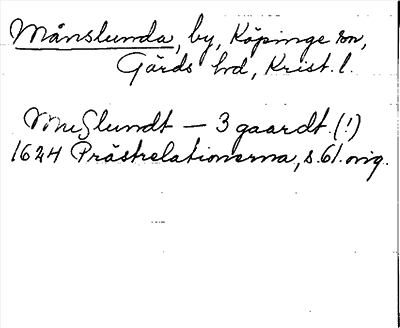 Månslunda, by, Köpinge sn,
Gärds hd, Krist. l.
Slundt — 3 gaardt. (!)
1624 Prästrelationerna, s. 61. orig.